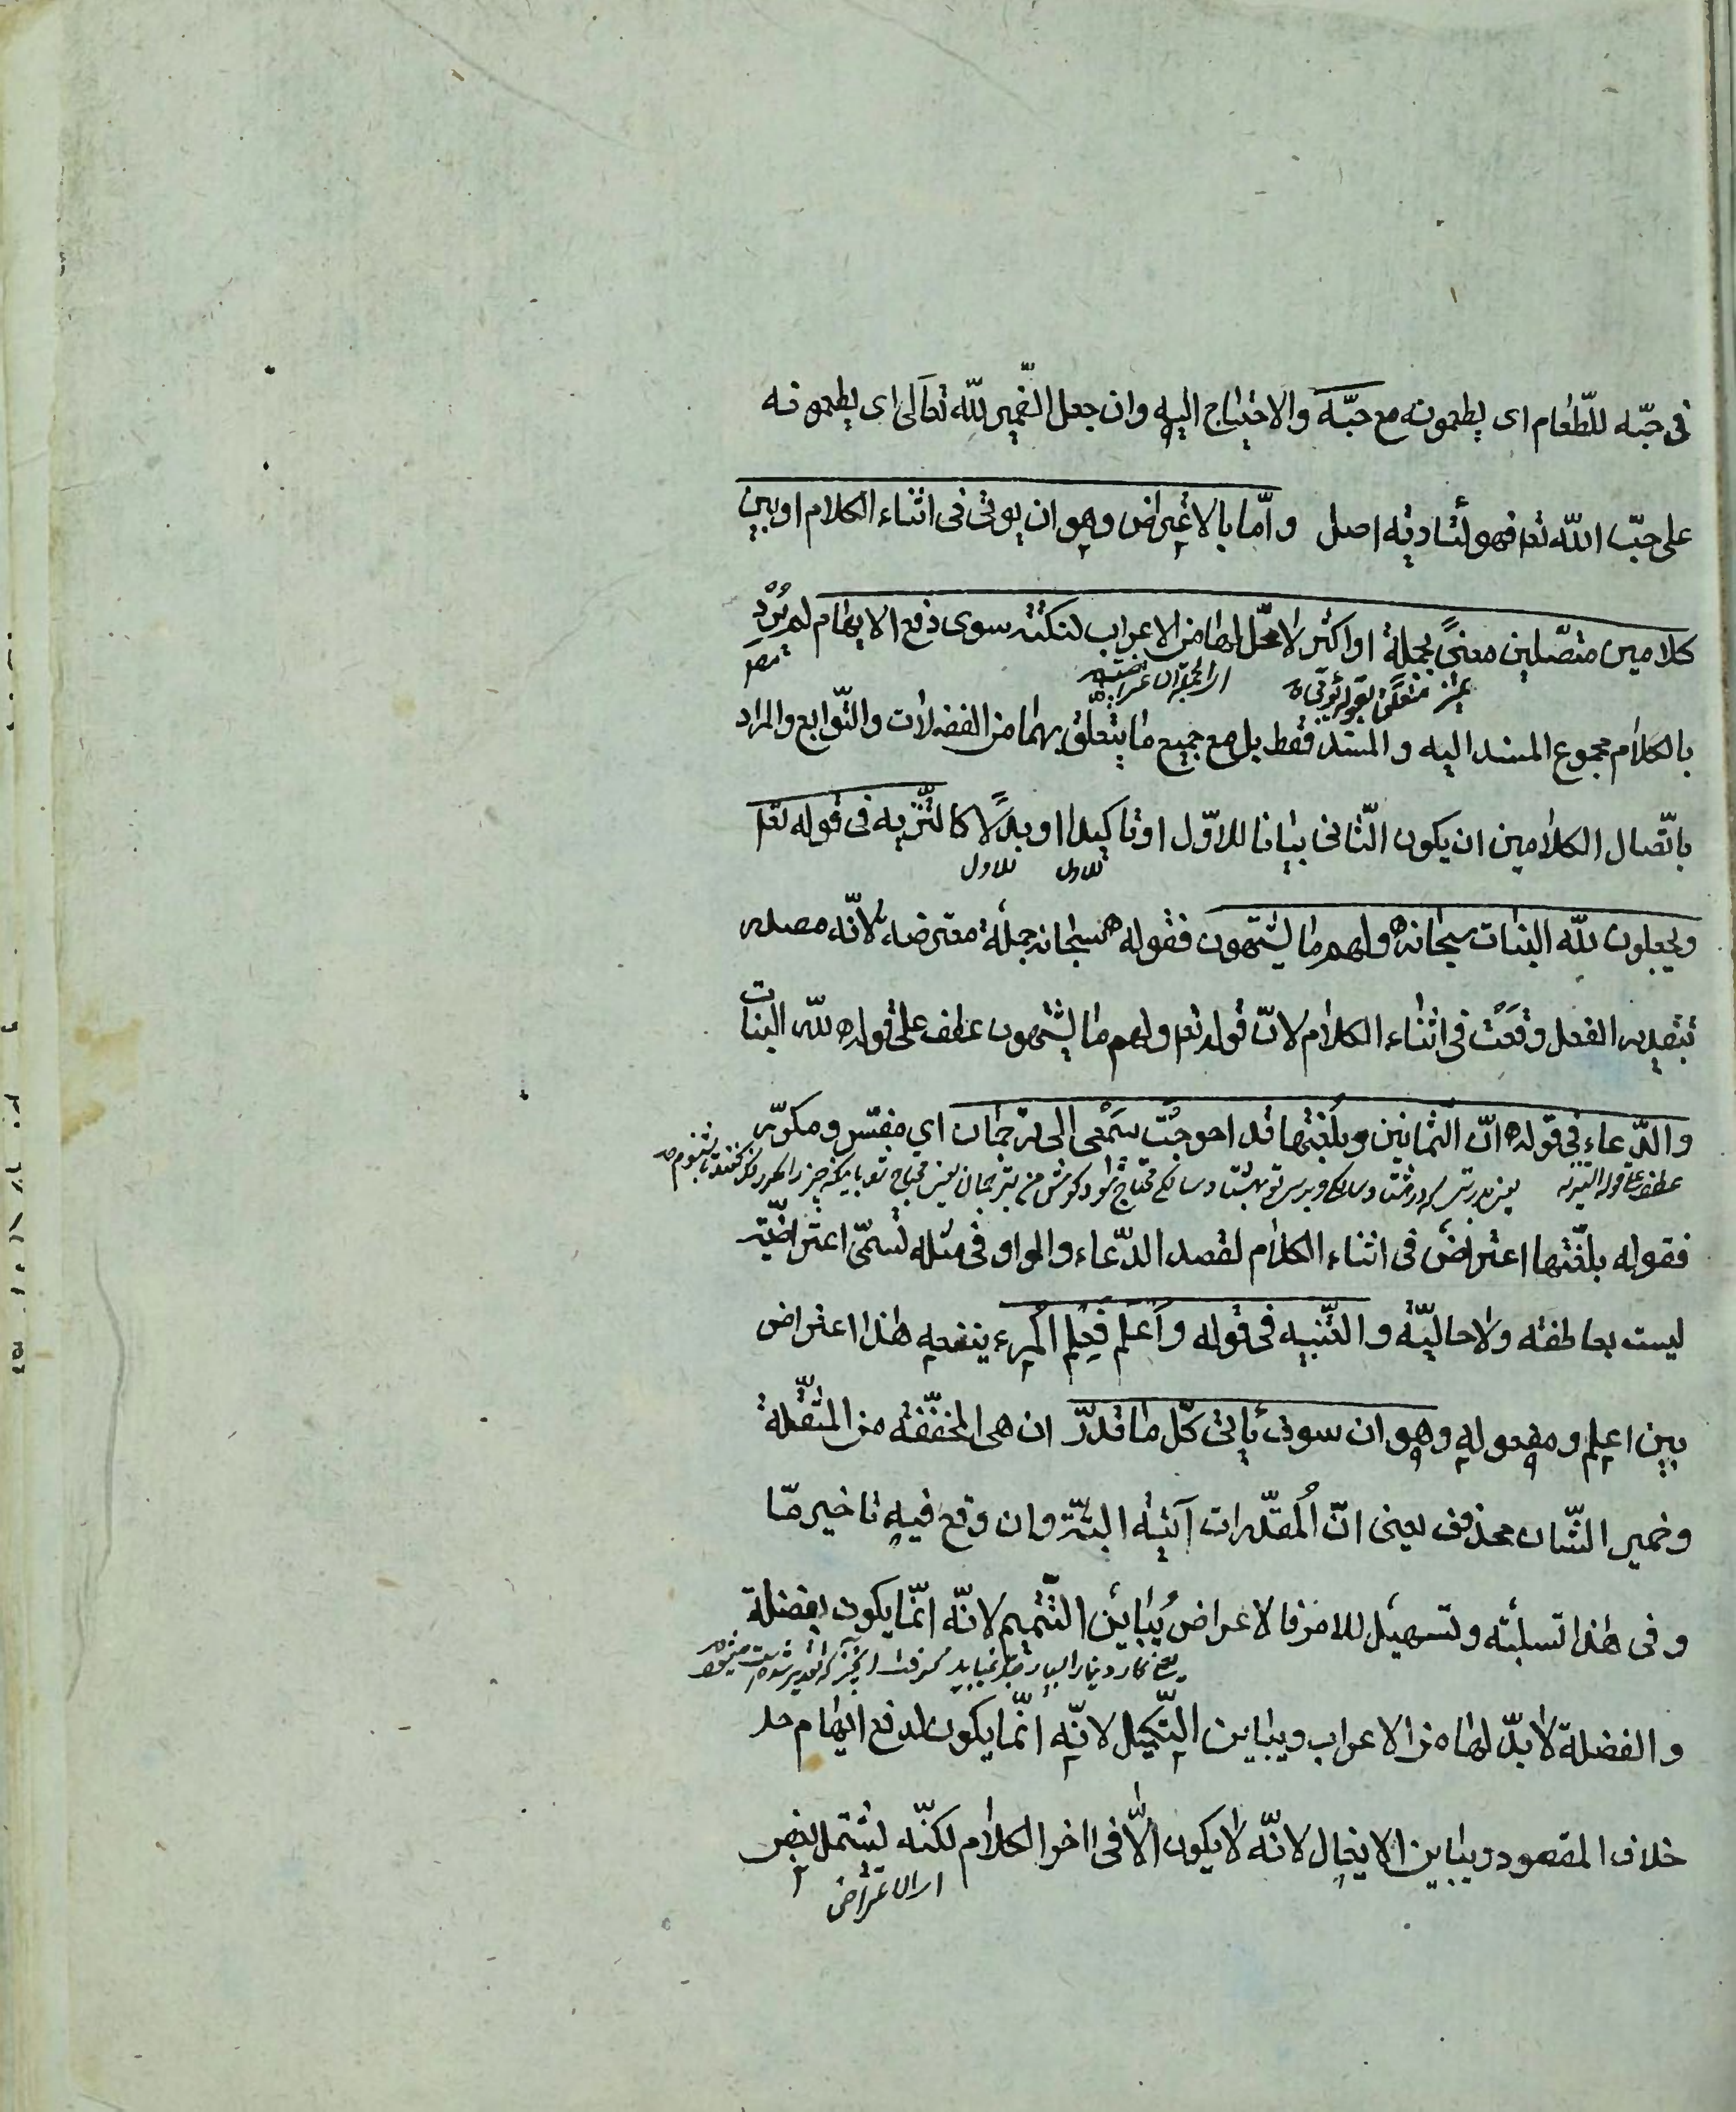 فى حبّه للطّعام اى يطعمونه مع حبّه والاحتياج اليه وان جعل الضّمير للّه تعالى اى يطعمونه
على حبّ اللّه تعا فهو لتادية اصل وامّا بالاعتراض وهو ان يوتى فى اثناء الكلام او بين
كلامين متصّلين معنىً بجملة او اكثر لا محلّ لها من الاعراب لنكتة سوى دفع الايهام لم يُرِدْ
متعلّق بقوله يؤتى اى الجملة الاعتراضيّة مصر
بالكلام مجموع المسند اليه و المسند فقط بل مع جميع ما يتعلّق بهما من الفضلات والتّوابع والمراد
باتّصال الكلامين ان يكون الثّانى بيانا للاوّل او تاكيدا او بدلًا كالتّنزيه فى قوله تعا
للاول للاول
ويجعلون للّه البنات سبحانه ولهم ما يشتهون فقوله سبحانه جملة معترضة لانّه مصدر
بتقدير الفعل وقَعَت فى اثناء الكلام لانّ قوله تعا ولهم ما يشتهون عطف على قوله للّه البنات
والدّعاء فى قوله انّ الثّمانين وبلّغتها قد احوجَت سَمْعى الى ترجمان اي مفسّر ومكرّر
عطف على قوله التنزيه
فقوله بلّغتها اعتراض فى اثناء الكلام لقصد الدّعاء والواو فى مثله تسمّى اعتراضيّة
ليست بعاطفة ولا حاليّة و التّنبيه فى قوله وَاعلم فعِلم المرء ينفعه هذا اعتراض
بين اعلم ومفعوله وهو ان سوف يأتى كلّ ما قدرّ ان هى المخفّفة من المثقّلة
وضمير الشّان محذوف يعنى انّ المُقدّرات آتية البتّة وان وقع فيه تاخير مّا
وفى هذا تسلية وتسهيل للامر فالاعتراض يُباين التّتميم لانّه انّما يكون بفضلة
والفضلة لا بدّ لها من الاعراب ويباين التّكميل لانّه انّما يكون لدفع ايهام
خلاف المقصود ويباين الايغال لانّه لا يكون الّا فى اخر الكلام لكنّه يشتمل بعض
اى الاعتراض